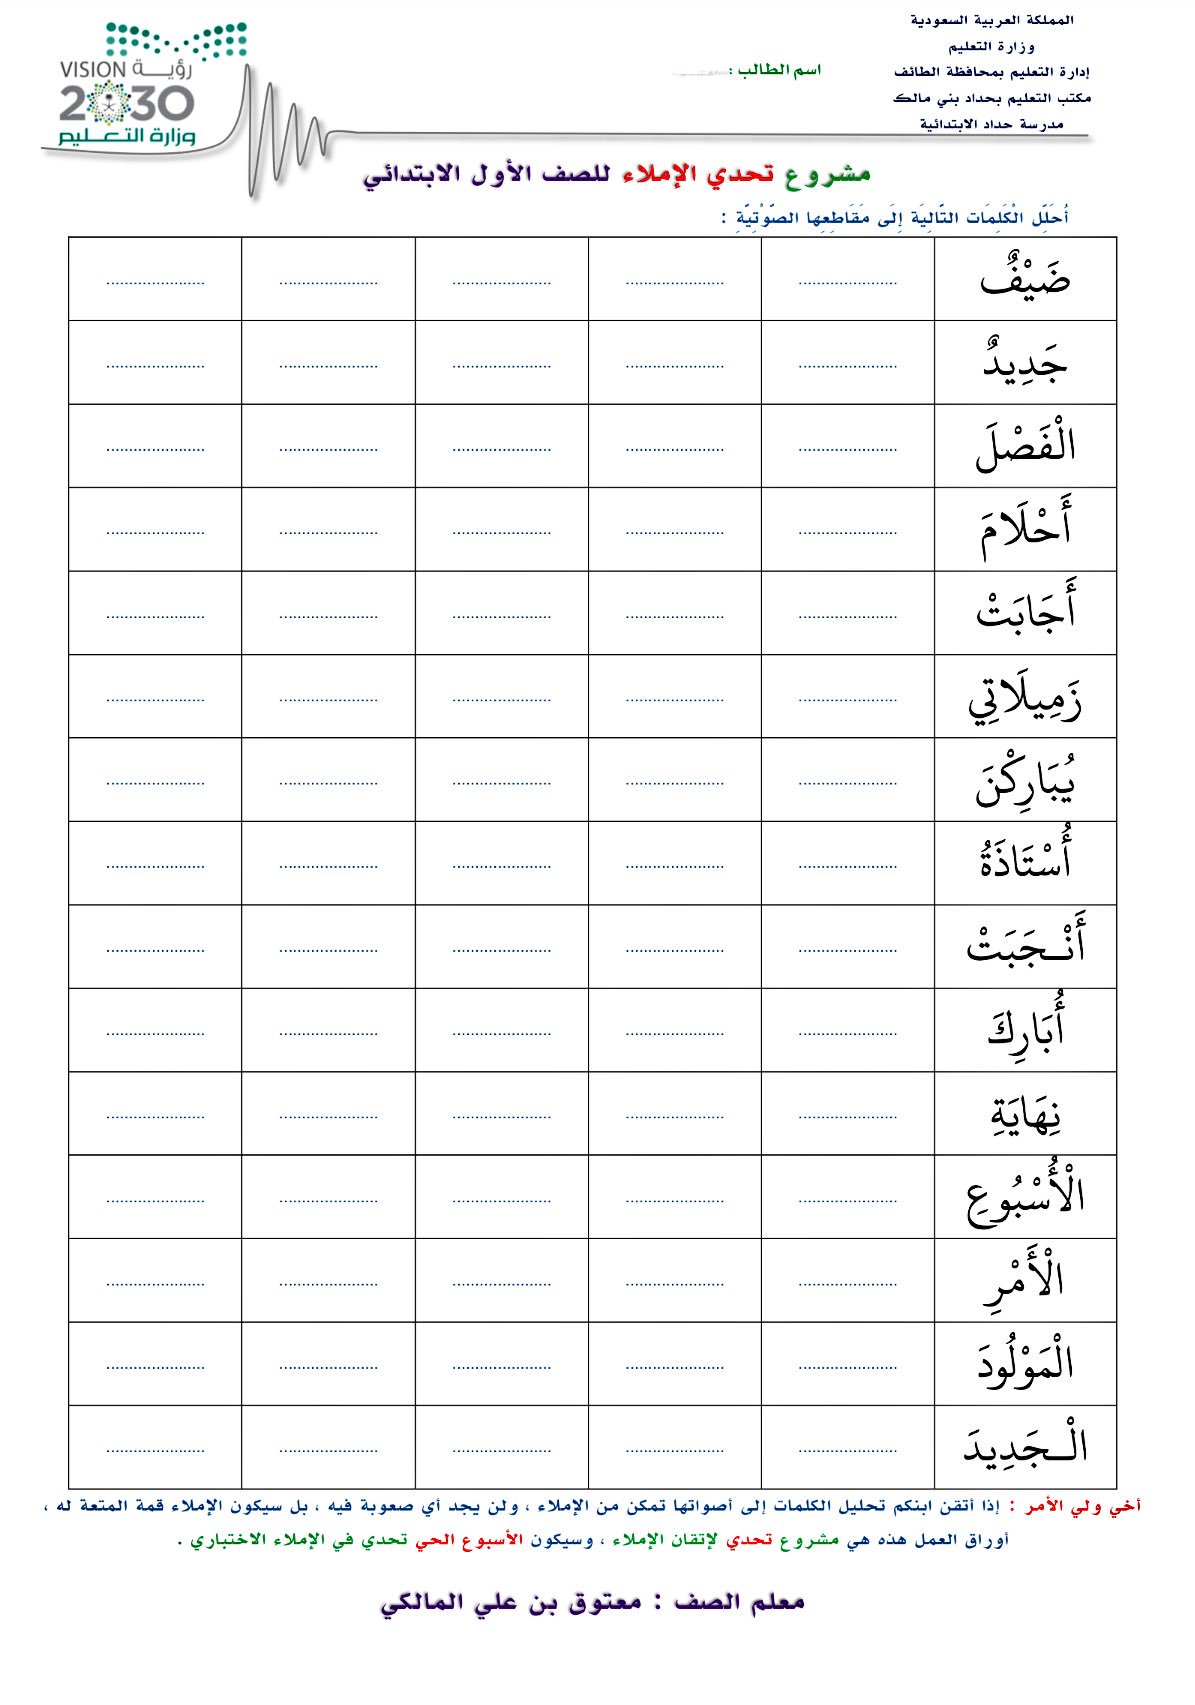 المملكة العربية السعودية
وزارة التعليم
إدارة التعليم بمحافظة الطائف
مكتب التعليم بحداد بني مالك
مدرسة حداد الابتدائية
اسم الطالب :
VISION رؤيــة
2030
وزارة التعـليم
مشروع تحدي الإملاء للصف الأول الابتدائي
أُحَلِّل الْكَلِمَات التَّالِيَة إِلَى مَقَاطِعِها الصَّوْتِيَّةِ :
ضَيْفٌ ..................... ..................... ..................... ..................... .....................
جَدِيدٌ ..................... ..................... ..................... ..................... .....................
الْفَصْلَ ..................... ..................... ..................... ..................... .....................
أَحْلَامَ ..................... ..................... ..................... ..................... .....................
أَجَابَتْ ..................... ..................... ..................... ..................... .....................
زَمِيلَاتِي ..................... ..................... ..................... ..................... .....................
يُبَارِكْنَ ..................... ..................... ..................... ..................... .....................
أُسْتَاذَةُ ..................... ..................... ..................... ..................... .....................
أَنْـجَبَتْ ..................... ..................... ..................... ..................... .....................
أُبَارِكَ ..................... ..................... ..................... ..................... .....................
نِهَايَةِ ..................... ..................... ..................... ..................... .....................
الْأُسْبُوعِ ..................... ..................... ..................... ..................... .....................
الْأَمْرِ ..................... ..................... ..................... ..................... .....................
الْمَوْلُودَ ..................... ..................... ..................... ..................... .....................
الْـجَدِيدَ ..................... ..................... ..................... ..................... .....................
أخي ولي الأمر : إذا أتقن ابنكم تحليل الكلمات إلى أصواتها تمكن من الإملاء ، ولن يجد أي صعوبة فيه ، بل سيكون الإملاء قمة المتعة له ،
أوراق العمل هذه هي مشروع تحدي لإتقان الإملاء ، وسيكون الأسبوع الحي تحدي في الإملاء الاختباري .
معلم الصف : معتوق بن علي المالكي